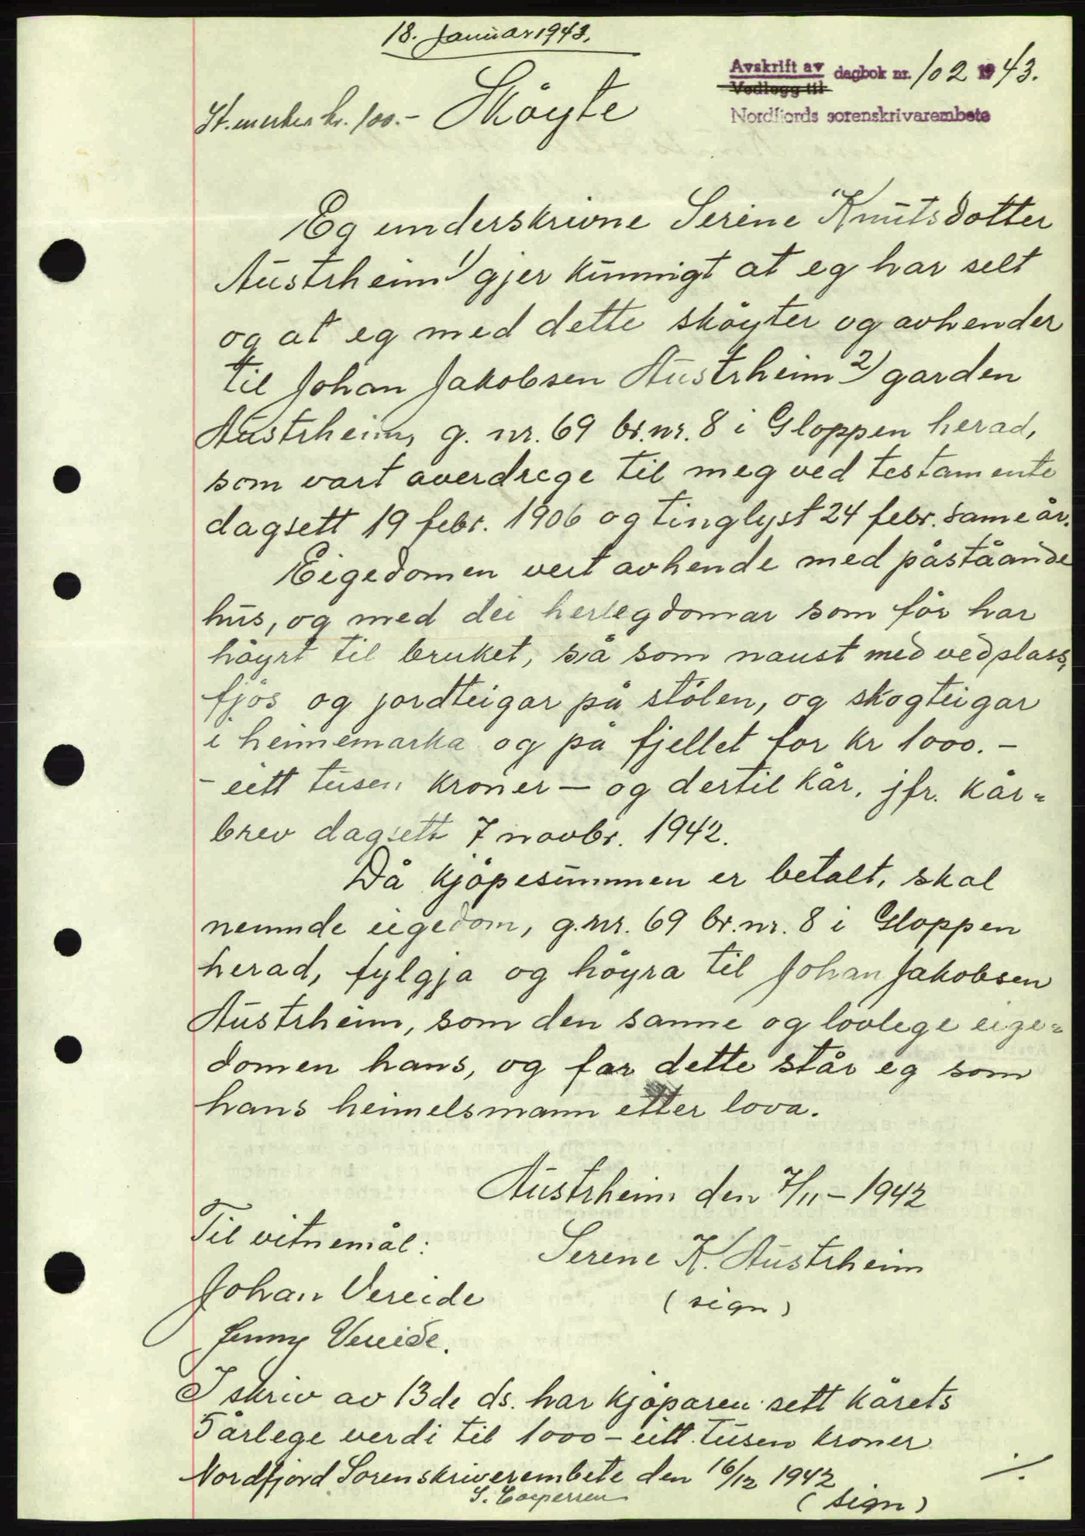 18. Januar 1943.
Avskrift av
Vedlegg til
dagbok nr. 102 1943.
Nordfjords sorenskrivarembete
St.merker kr. 100.- Sköyte
Eg underskrivne Serine Knutsdotter
Austrheim 1) gjer kunnigt at eg har selt
og at eg med dette sköyter og avhender
til Johan Jakobsen Austrheim 2) garden
Austrheim, g. nr. 69 br.nr. 8 i Gloppen herad,
som vart overdrege til meg ved testamente
dagsett 19 febr. 1906 og tinglyst 24 febr. same år.
Eigedomen vert avhende med påståande
hus, og med dei herlegdomar som för har
höyrt til bruket, så som naust med vedplass,
fjös og jordteigar på stölen, og skogteigar
i heimemarka og på fjellet for kr 1000.-
- eitt tusen kroner - og dertil kår, jfr. kår=
brev dagsett 7 novbr. 1942.
Då kjöpesummen er betalt, skal
nemnde eigedom, g.nr. 69 br.nr. 8 i Gloppen
herad, fylgja og höyra til Johan Jakobsen
Austrheim, som den sanne og lovlege eige=
domen hans, og for dette står eg som
hans heimelsmann etter lova.
Austrheim den 7/11 - 1942
Til vitnemål:
Serene K. Austrheim
Johan Vereide
(sign)
Jenny Vereide.
I skriv av 13de ds. har kjöparen sett kårets
5 årlege verdi til 1000 - eitt tusen kroner
Nordfjord Sorenskriverembete den 16/12 1942
(sign)